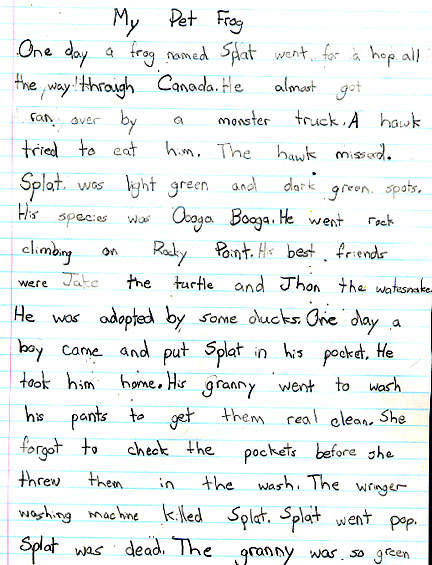 My Pet Frog
One day a frog named Splat went for a hop all
the way through Canada. He almost got
ran over by a monster truck. A hawk
tried to eat him. The hawk missed.
Splat was light green and dark green spots.
His species was Ooga Booga. He went rock
climbing on Rocky Point. His best friends
were Jake the turtle and Jhon the watesnake.
He was adopted by some ducks. One day a
boy came and put Splat in his pocket. He
took him home. His granny went to wash
his pants to get them real clean. She
forgot to check the pockets before she
threw them in the wash. The wringer
washing machne killed Splat. Splat went pop.
Splat was dead. The granny was so green